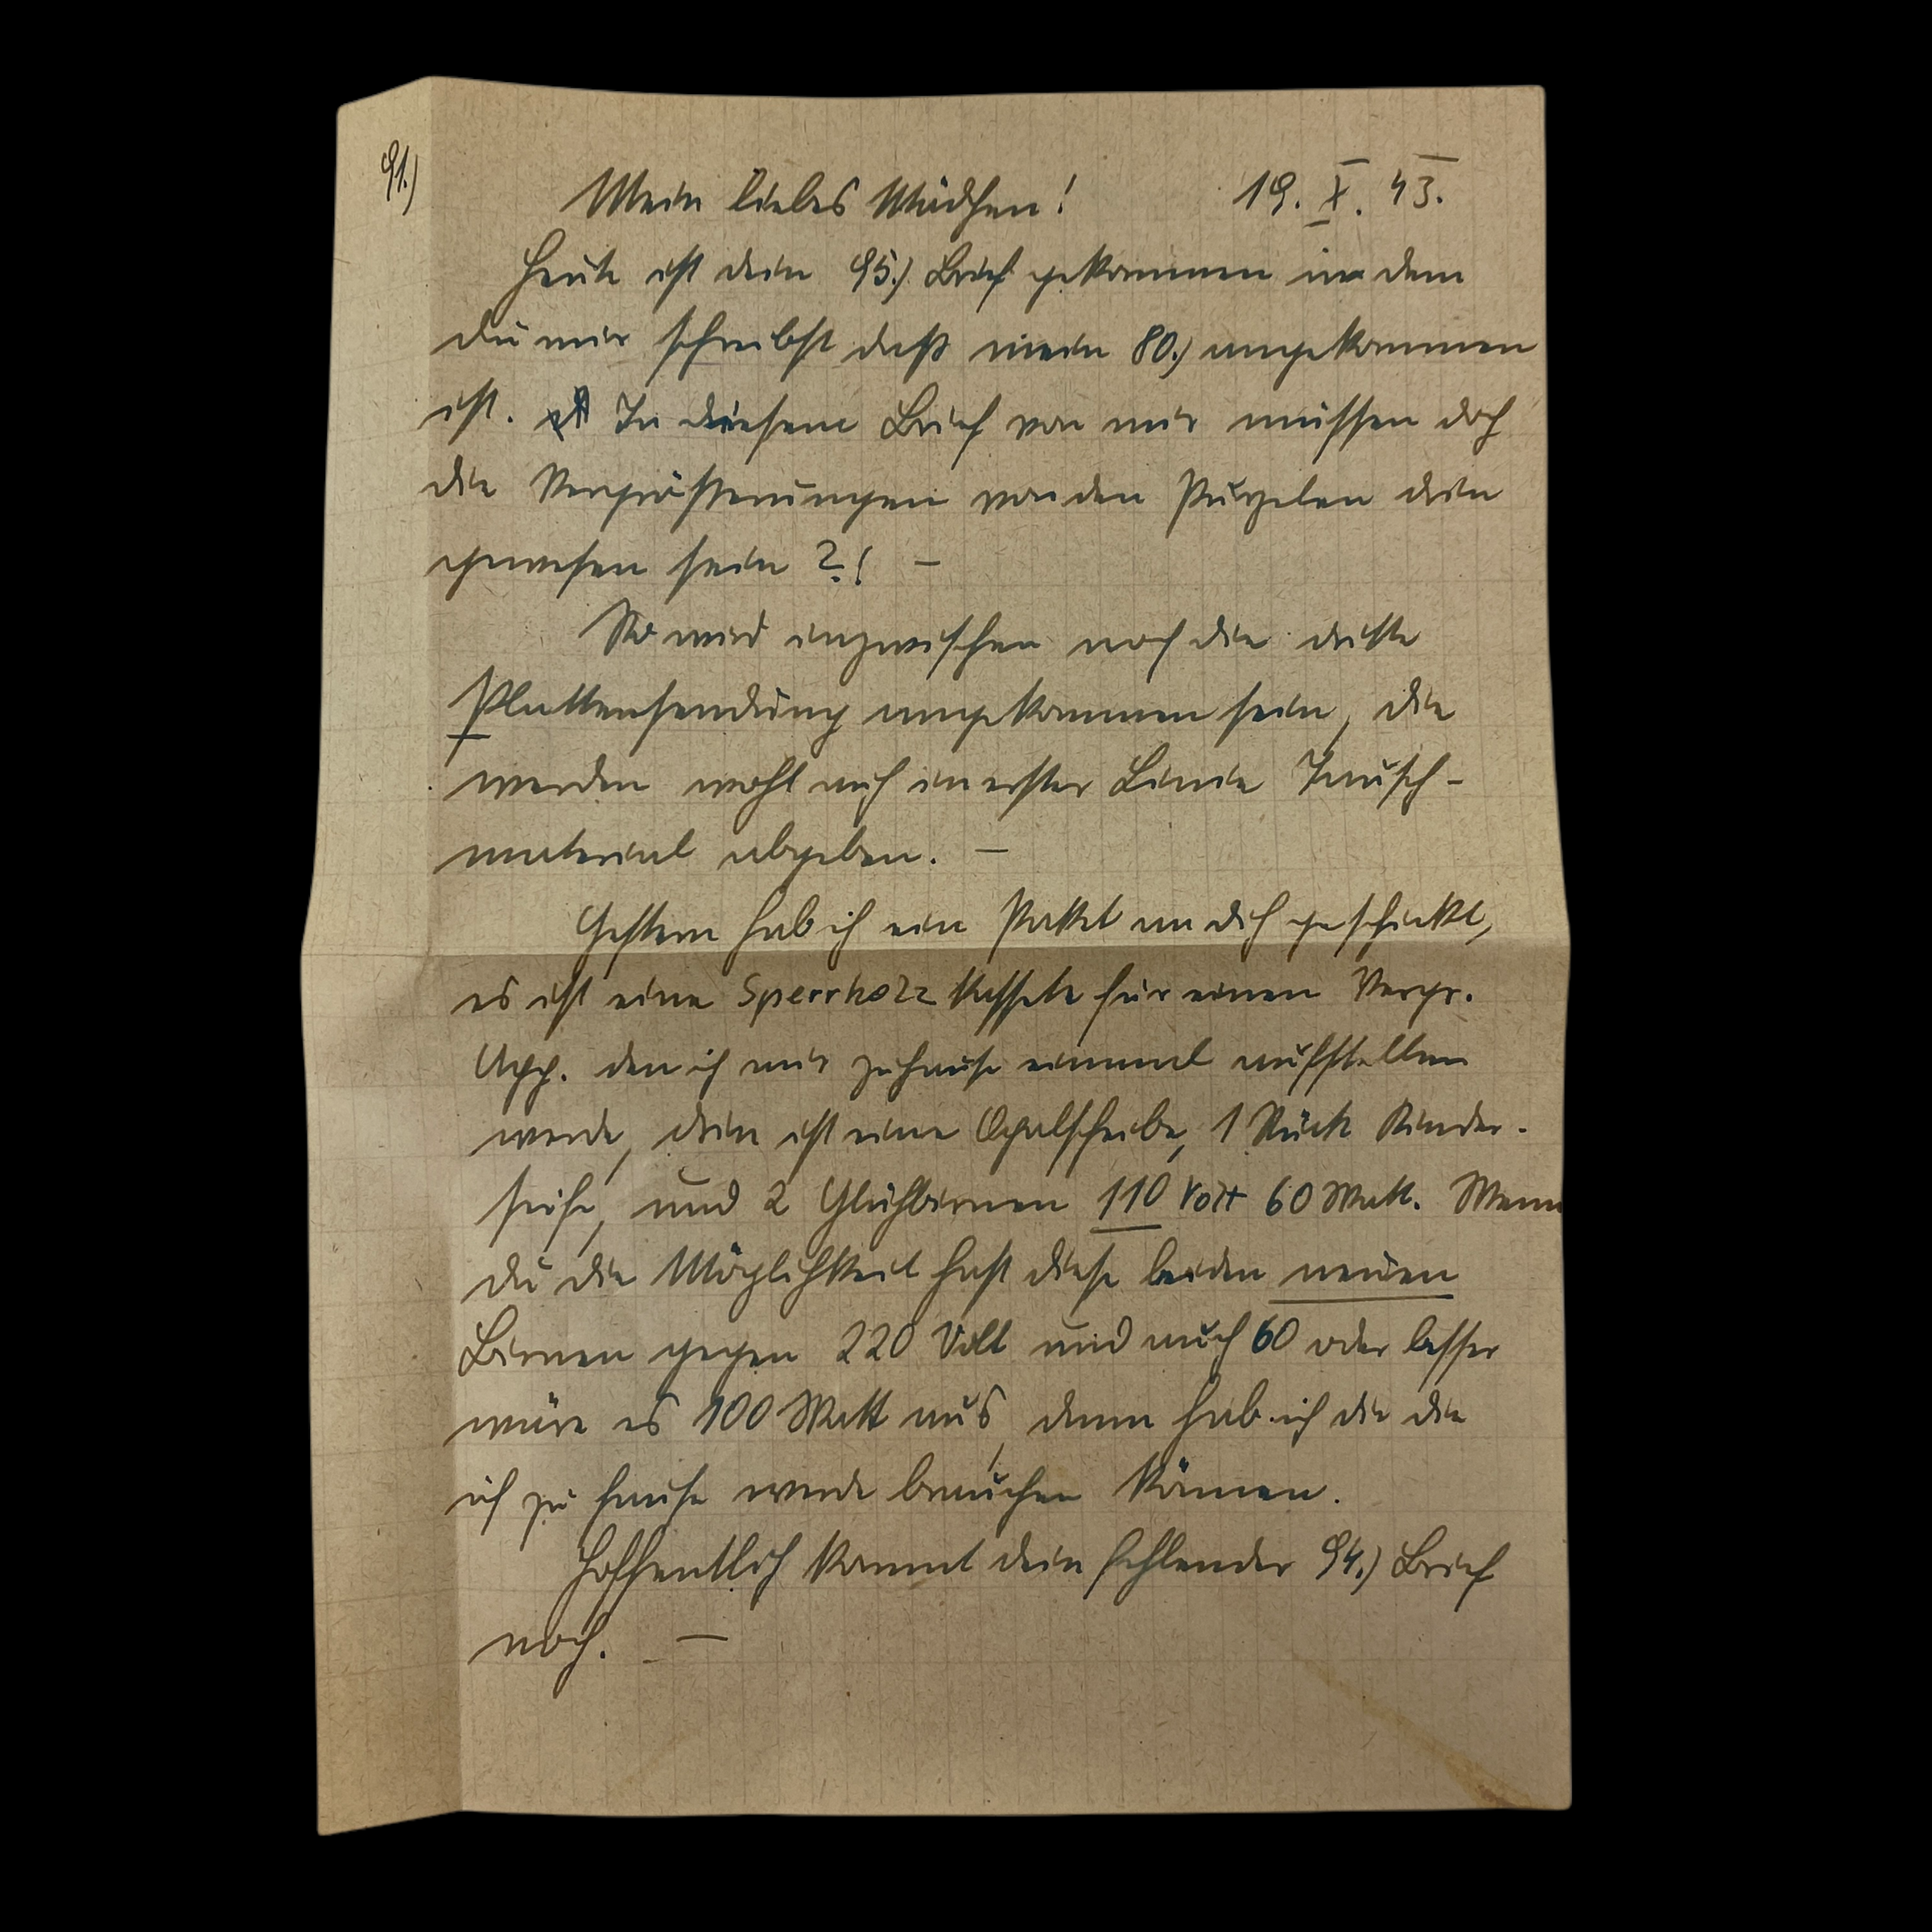 91.)
Mein liebes Mädchen! 19. X. 43.
Heute ist dein 95.) Brief gekommen in dem
du mir schreibst daß mein 80.) angekommen
ist. In diesem Brief von mir müssen doch
die Vergrösserungen von den Purzelen drin
gewesen sein?! —
So wird inzwischen noch die dritte
Plattensendung angekommen sein, die
werden wohl auch in erster Linie Tausch-
material abgeben. —
Gestern hab ich ein Paket an dich geschickt,
es ist eine Sperrholz Kassete für einen Vergr.
App. den ich mir zuhause einmal aufstellen
werde, drin ist eine Opalscheibe, 1 Stück Kinder-
seife, und 2 Glühbirnen 110 Volt 60 Watt. Wenn
du die Möglichkeit hast diese beiden neuen
Birnen gegen 220 Volt und auch 60 oder besser
wäre es 100 Watt aus, dann hab ich die die
ich zu hause werde brauchen können.
Hoffentlich kommt dein fehlender 94.) Brief
noch. —